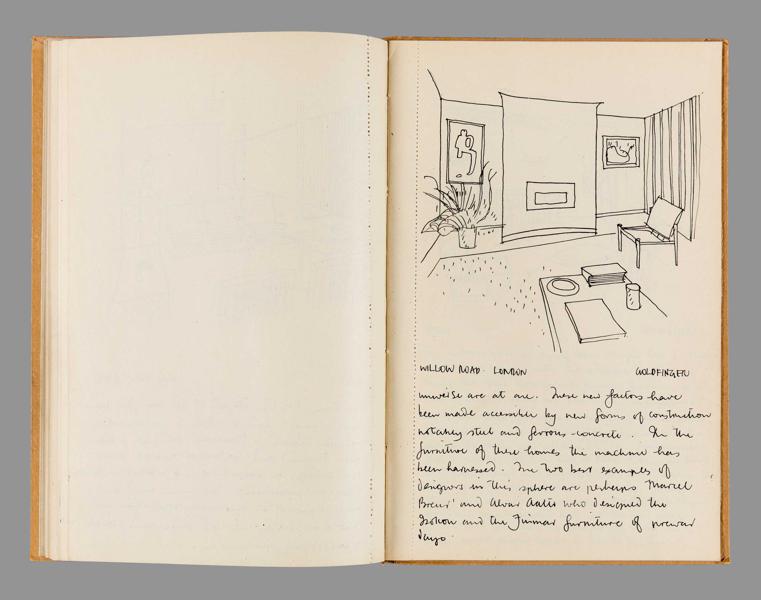 WILLOW ROAD. LONDON GOLDFINGER
universe are at one. These new factors have
been made accessible by new forms of construction
notabley steel and ferrous-concrete. In the
furniture of these homes the machine has
been harnessed. The two best examples of
designers in this sphere are perhaps Marcel
Breur' and Alvar Aalto who designed the
Isokon and the Finmar furniture of prewar
days.